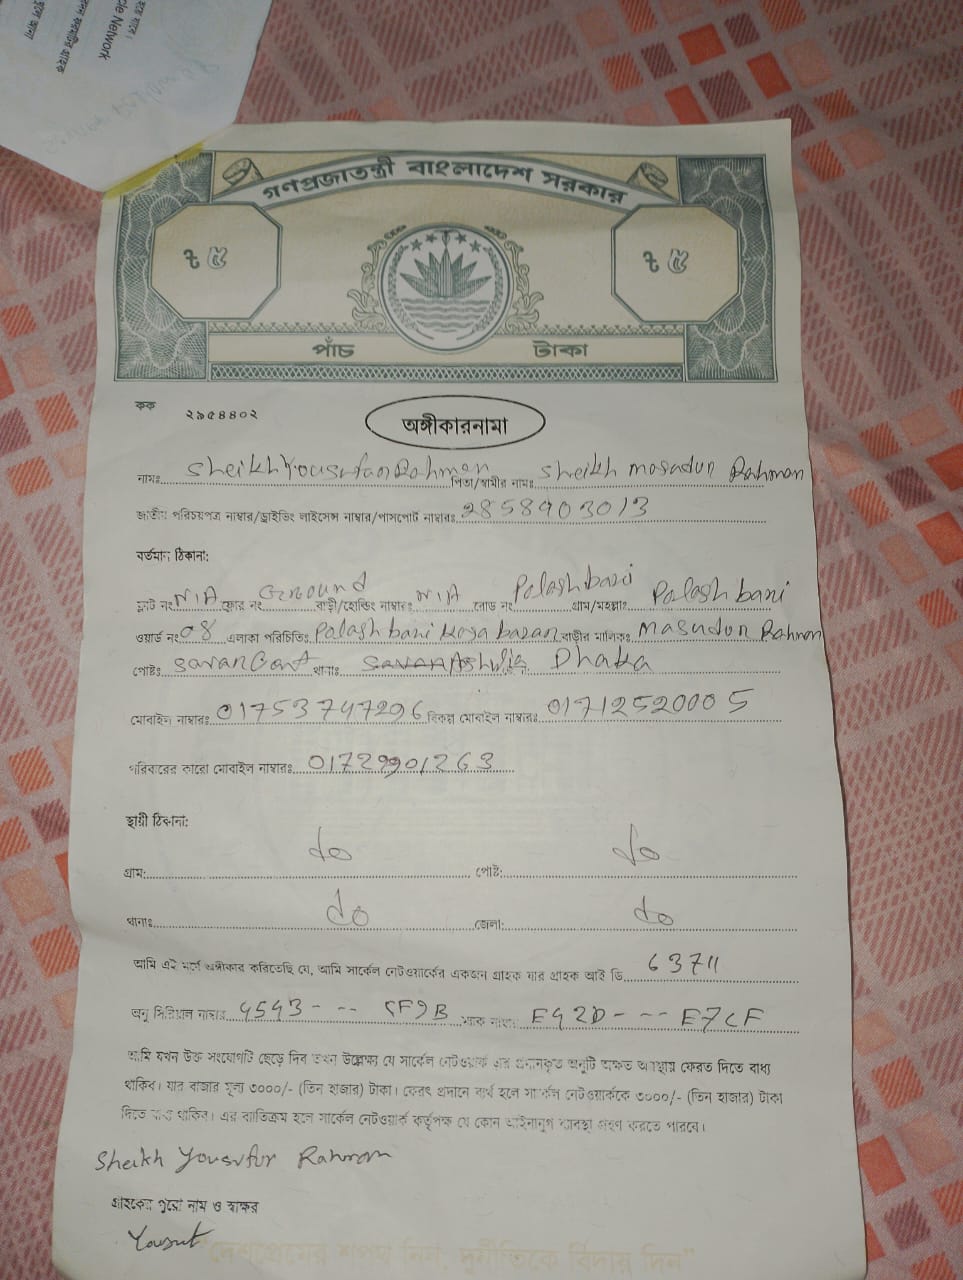 cle Network
গণপ্রজাতন্ত্রী বাংলাদেশ সরকার
৳ ৫ ৳ ৫
পাঁচ টাকা
কক ২৯৫৪৪০২
অঙ্গীকারনামা
নামঃ Sheikh Yousufur Rahman পিতা/স্বামীর নামঃ Sheikh Masudur Rahman
জাতীয় পরিচয়পত্র নাম্বার/ড্রাইভিং লাইসেন্স নাম্বার/পাসপোর্ট নাম্বারঃ 2858903013
বর্তমান ঠিকানা:
ফ্লাট নং N/A ফ্লোর নং Ground বাড়ী/হোল্ডিং নাম্বারঃ N/A রোড নং Palashbari গ্রাম/মহল্লাঃ Palashbari
ওয়ার্ড নং 08 এলাকা পরিচিতিঃ Palashbari bazar বাড়ীর মালিকঃ Masudur Rahman
পোষ্টঃ Savar Cant থানাঃ Ashulia Dhaka
মোবাইল নাম্বারঃ 01753747296 বিকল্প মোবাইল নাম্বারঃ 01712520005
পরিবারের কারো মোবাইল নাম্বারঃ 01729901263
স্থায়ী ঠিকানা:
গ্রাম: do পোষ্ট: do
থানাঃ do জেলা: do
আমি এই মর্মে অঙ্গীকার করিতেছি যে, আমি সার্কেল নেটওয়ার্কের একজন গ্রাহক যার গ্রাহক আই ডি 63711
অনু সিরিয়াল নাম্বার 4543--- CF9B ম্যাক নাম্বা E42D--- E7CF
আমি যখন উক্ত সংযোগটি ছেড়ে দিব তখন উল্লেক্ষ্য যে সার্কেল নেটওয়ার্ক এর প্রদানকৃত অনুটি অক্ষত অবস্থায় ফেরত দিতে বাধ্য
থাকিব। যার বাজার মূল্য ৩০০০/- (তিন হাজার) টাকা। ফেরৎ প্রদানে ব্যর্থ হলে সার্কেল নেটওয়ার্ককে ৩০০০/- (তিন হাজার) টাকা
দিতে বাধ্য থাকিব। এর ব্যতিক্রম হলে সার্কেল নেটওয়ার্ক কর্তৃপক্ষ যে কোন আইনানুগ ব্যবস্থা গ্রহণ করতে পারবে।
Sheikh Yousufur Rahman
গ্রাহকের পুরো নাম ও স্বাক্ষর
Yousuf
"দেশপ্রেমের শপথ নিন, দুর্নীতিকে বিদায় দিন"